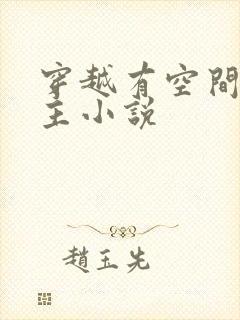 穿越有空間
主小說
趙玉先